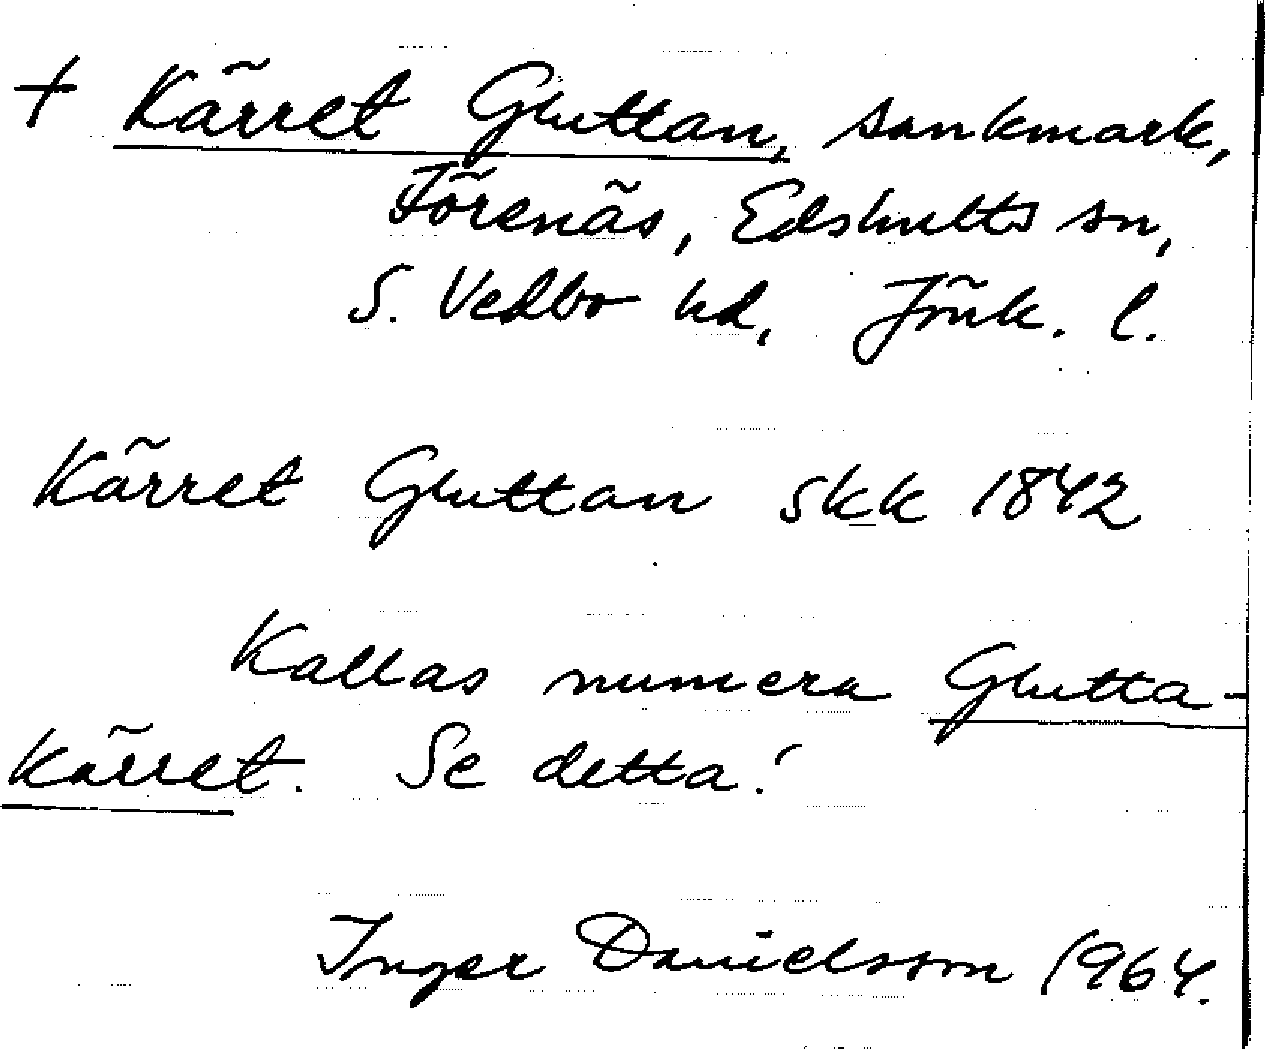 + Kärret Gluttan, sankmark,
Förenäs, Edshults sn,
S. Vedbo hd, Jönk. l.
Kärret Gluttan skk 1842
Kallas numera Glutta-
kärret. Se detta!
Inger Danielsson 1964.